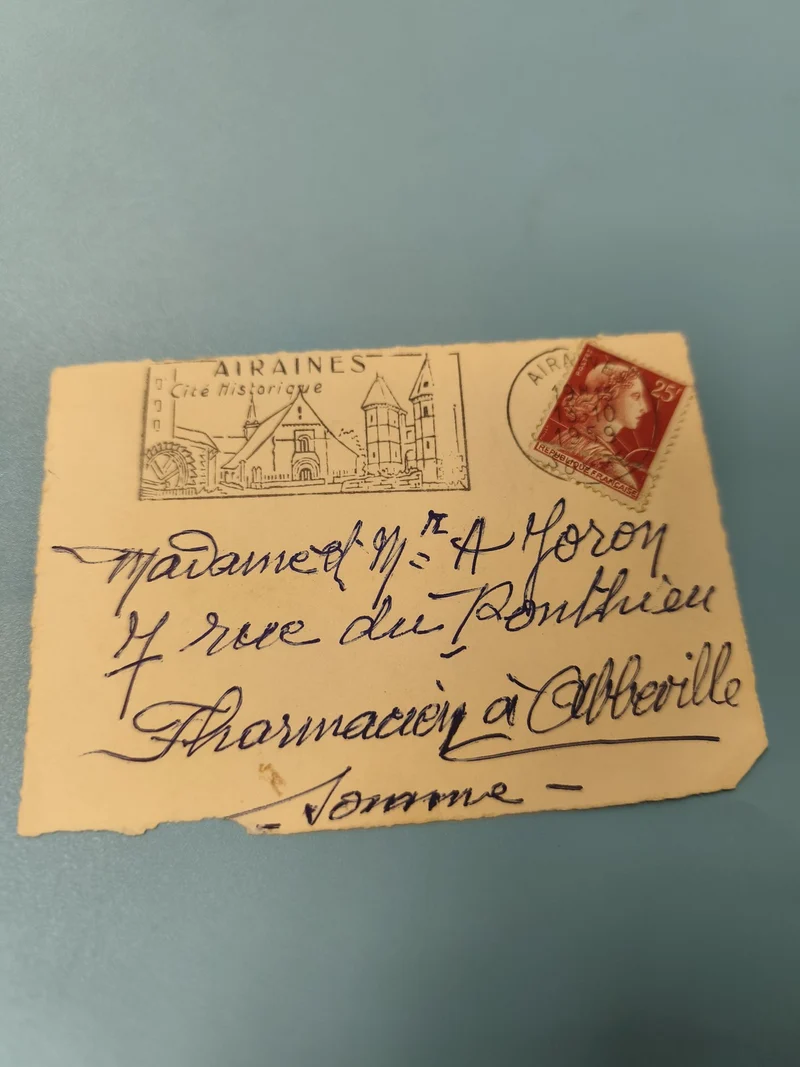 AIRAINES
Cité Historique
AIRAINES
10
1959
POSTES
25F
REPUBLIQUE FRANÇAISE
Madame et Mr A Joron
7 rue du Ponthieu
Pharmacien à Abbeville
- Somme -